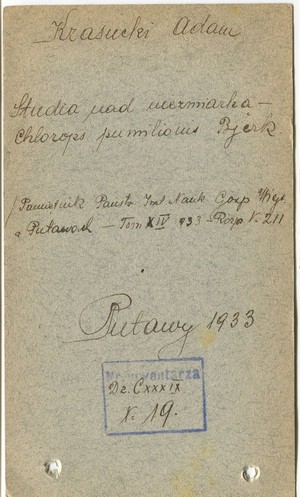 Krasucki Adam
Studia nad niezmiarką –
Chlorops pumilionis Bjerk.
/Pamiętnik Państw. Inst. Nauk. Gosp. Wiejs.
w Puławach – Tom XIV 1933 – Rozp. N. 211
Puławy 1933
Nr inwentarza
Dz. CXXXIX
N. 19.